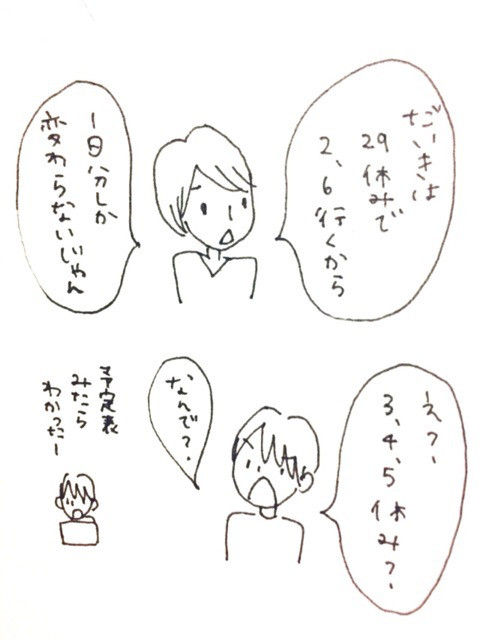 だいきは
29休みで
2、6行くから
1日分しか
変わらないじゃん
えっ、
3、4、5休み？
なんで？
予定表
みたら
わかったー